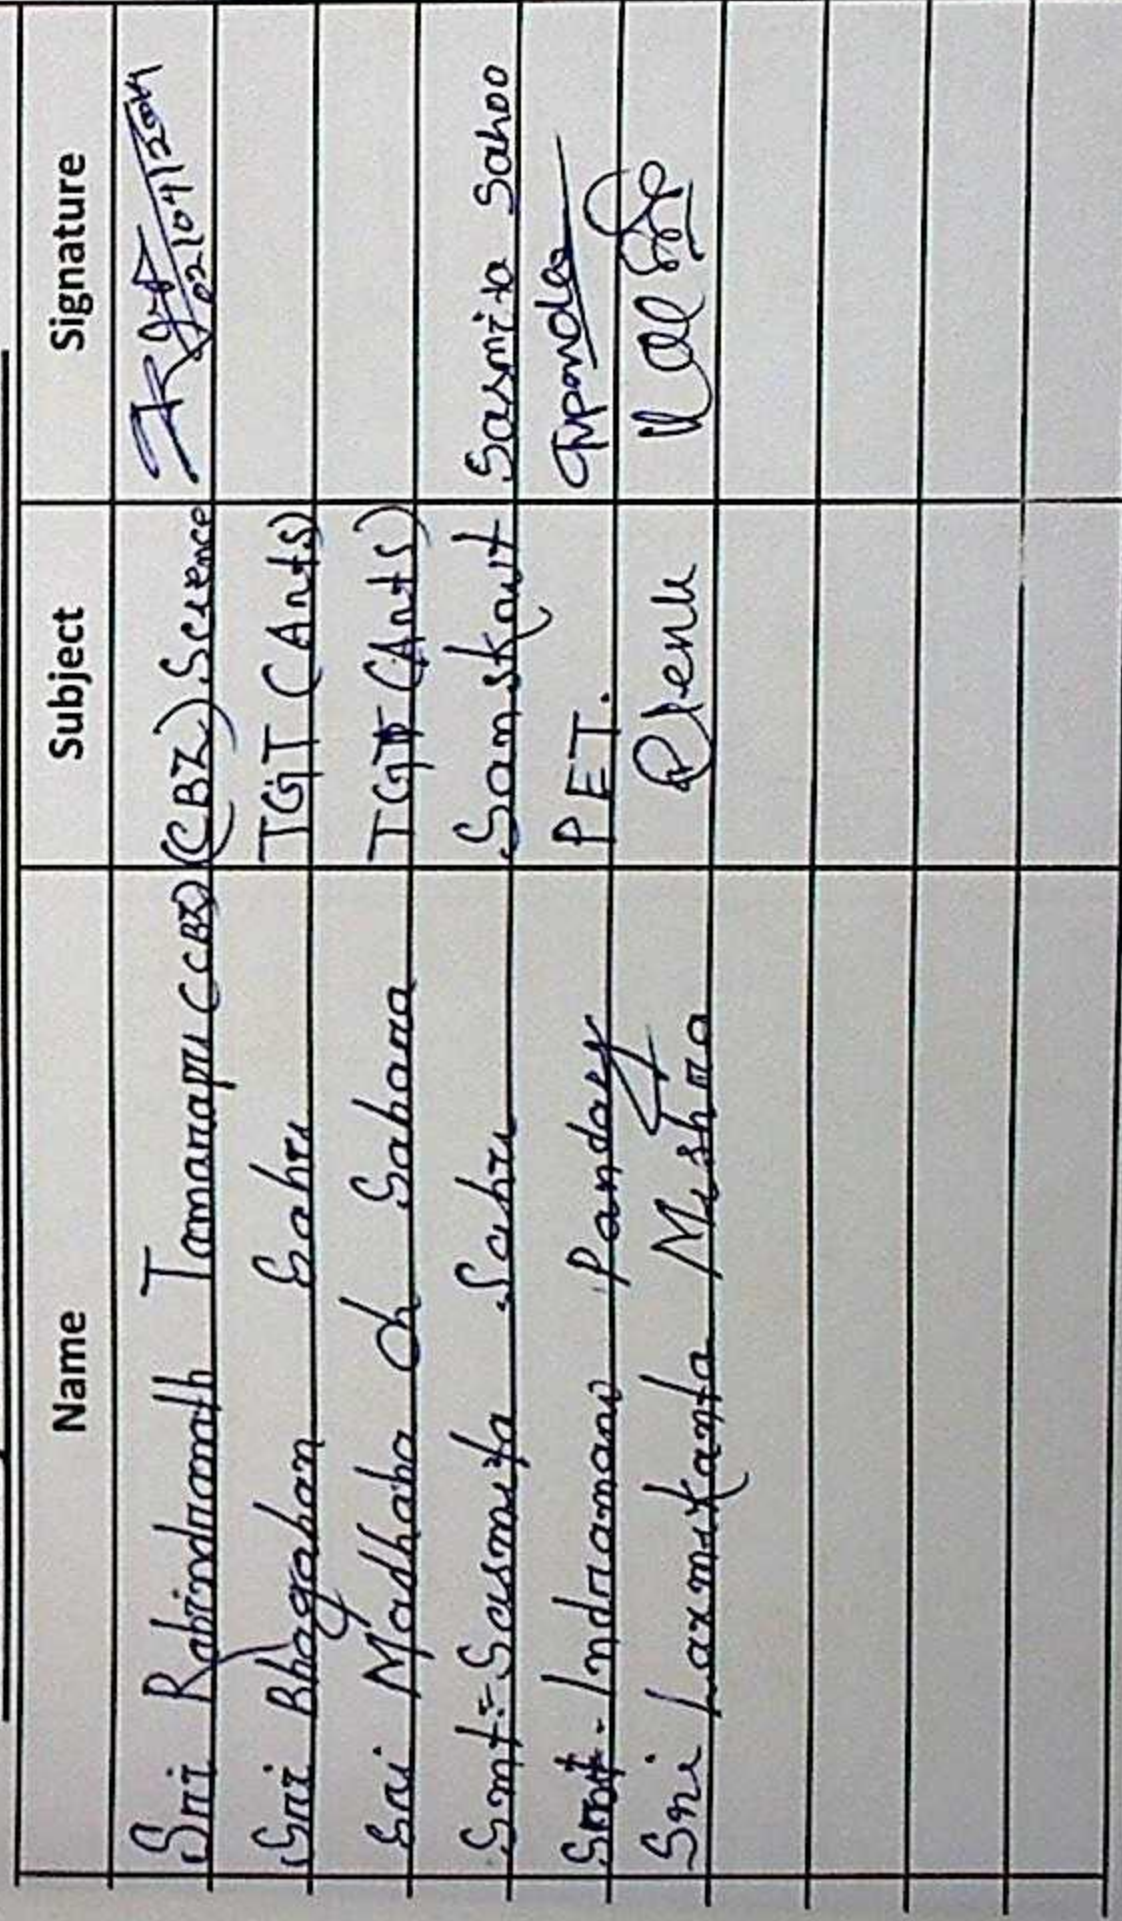 Name Subject Signature
Sri Rabindranath Tamarapu (CBZ) (CBZ) Science 02/04/2024
Sri Bhagaban Sahu TGT (Arts)
Sri Madhaba ch Sabara TGT (Arts)
Smt:- Sasmita Sahu Samskrut Sasmita Sahoo
Indramani Pandey PET.
Sri Laxmikanta Mishra